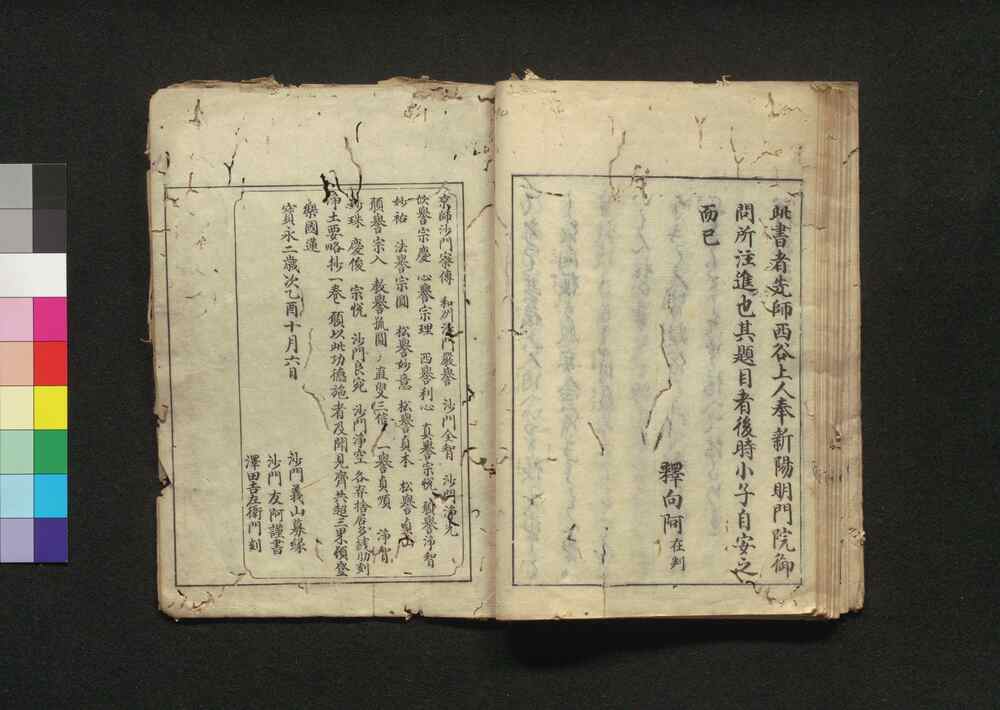 此書者先師西谷上人奉新陽明門院御
問所注進也其題目者後時小子自安之
而已
釋向阿在判
京師沙門寥傳 和州沙門嚴譽 沙門全智 沙門淨光
欣譽宗慶 心譽宗理 西譽利心 真譽宗悅 順譽淨智
妙祐 法譽宗圓 松譽妙意 松譽貞本 松譽貞山
願譽宗入 教譽孤圓 直叟三信 一譽貞頌 沛智
妙珠 慶俊 宗悅 沙門良宛 沙門淨空 各弃捨居多錢助刻
淨土要略抄一卷願以此功德施者及聞見齊共超三界頓登
樂國蓮
寶永二歲次乙酉十月六日
沙門義山募緣
沙門友阿謹書
澤田吉左衞門刻